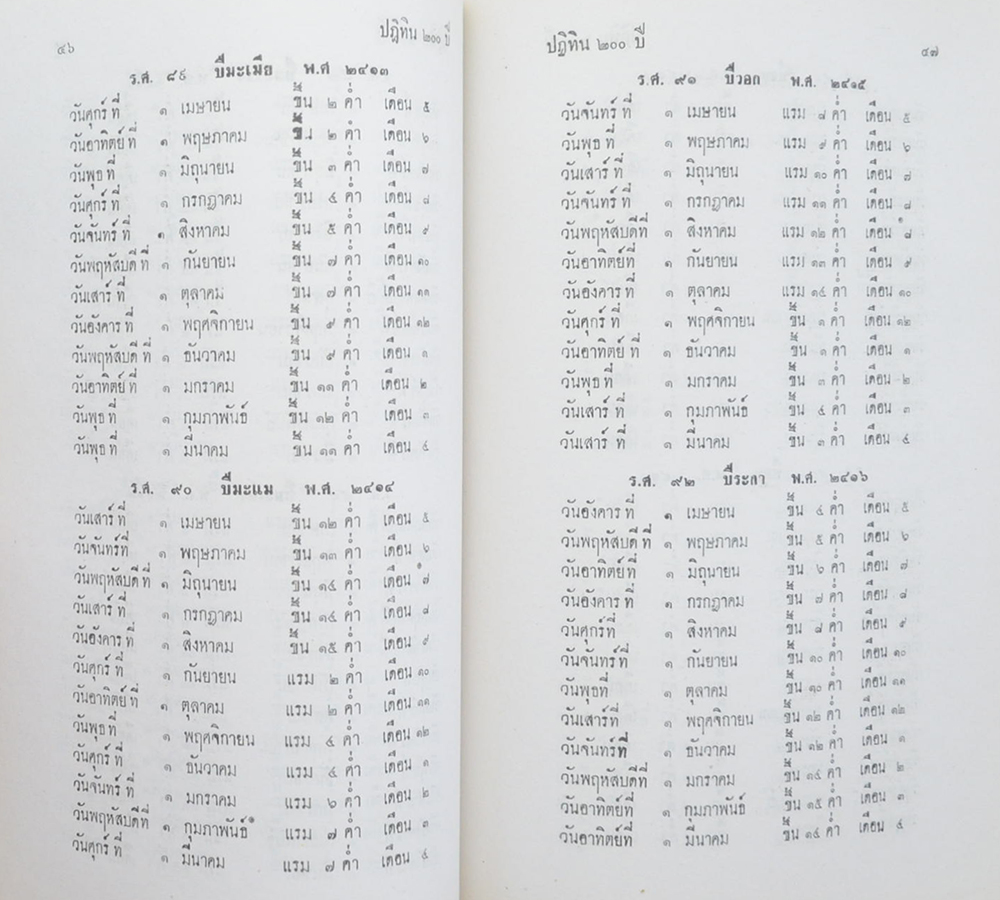 ๔๖
ปฏิทิน ๒๐๐ ปี
ร.ศ. ๘๙ ปีมะเมีย พ.ศ ๒๔๑๓
วันศุกร์ ที่ ๑ เมษายน ขึ้น ๒ ค่ำ เดือน ๕
วันอาทิตย์ ที่ ๑ พฤษภาคม ขึ้น ๒ ค่ำ เดือน ๖
วันพุธ ที่ ๑ มิถุนายน ขึ้น ๓ ค่ำ เดือน ๗
วันศุกร์ ที่ ๑ กรกฎาคม ขึ้น ๔ ค่ำ เดือน ๘
วันจันทร์ ที่ ๑ สิงหาคม ขึ้น ๕ ค่ำ เดือน ๙
วันพฤหัสบดี ที่ ๑ กันยายน ขึ้น ๗ ค่ำ เดือน ๑๐
วันเสาร์ ที่ ๑ ตุลาคม ขึ้น ๗ ค่ำ เดือน ๑๑
วันอังคาร ที่ ๑ พฤศจิกายน ขึ้น ๙ ค่ำ เดือน ๑๒
วันพฤหัสบดี ที่ ๑ ธันวาคม ขึ้น ๙ ค่ำ เดือน ๑
วันอาทิตย์ ที่ ๑ มกราคม ขึ้น ๑๑ ค่ำ เดือน ๒
วันพุธ ที่ ๑ กุมภาพันธ์ ขึ้น ๑๒ ค่ำ เดือน ๓
วันพุธ ที่ ๑ มีนาคม ขึ้น ๑๑ ค่ำ เดือน ๔
ร.ศ. ๙๐ ปีมะแม พ.ศ. ๒๔๑๔
วันเสาร์ ที่ ๑ เมษายน ขึ้น ๑๒ ค่ำ เดือน ๕
วันจันทร์ที่ ๑ พฤษภาคม ขึ้น ๑๓ ค่ำ เดือน ๖
วันพฤหัสบดี ที่ ๑ มิถุนายน ขึ้น ๑๔ ค่ำ เดือน ๗
วันเสาร์ ที่ ๑ กรกฎาคม ขึ้น ๑๔ ค่ำ เดือน ๘
วันอังคาร ที่ ๑ สิงหาคม ขึ้น ๑๕ ค่ำ เดือน ๙
วันศุกร์ ที่ ๑ กันยายน แรม ๒ ค่ำ เดือน ๑๐
วันอาทิตย์ ที่ ๑ ตุลาคม แรม ๒ ค่ำ เดือน ๑๑
วันพุธ ที่ ๑ พฤศจิกายน แรม ๔ ค่ำ เดือน ๑๒
วันศุกร์ ที่ ๑ ธันวาคม แรม ๔ ค่ำ เดือน ๑
วันจันทร์ ที่ ๑ มกราคม แรม ๖ ค่ำ เดือน ๒
วันพฤหัสบดีที่ ๑ กุมภาพันธ์ แรม ๗ ค่ำ เดือน ๓
วันศุกร์ ที่ ๑ มีนาคม แรม ๗ ค่ำ เดือน ๔
ปฏิทิน ๒๐๐ ปี
๔๗
ร.ศ. ๙๑ ปีวอก พ.ศ. ๒๔๑๕
วันจันทร์ ที่ ๑ เมษายน แรม ๘ ค่ำ เดือน ๕
วันพุธ ที่ ๑ พฤษภาคม แรม ๙ ค่ำ เดือน ๖
วันเสาร์ ที่ ๑ มิถุนายน แรม ๑๐ ค่ำ เดือน ๗
วันจันทร์ ที่ ๑ กรกฎาคม แรม ๑๑ ค่ำ เดือน ๘
วันพฤหัสบดีที่ ๑ สิงหาคม แรม ๑๒ ค่ำ เดือน ๘
วันอาทิตย์ที่ ๑ กันยายน แรม ๑๓ ค่ำ เดือน ๙
วันอังคาร ที่ ๑ ตุลาคม แรม ๑๔ ค่ำ เดือน ๑๐
วันศุกร์ ที่ ๑ พฤศจิกายน ขึ้น ๑ ค่ำ เดือน ๑๒
วันอาทิตย์ ที่ ๑ ธันวาคม ขึ้น ๑ ค่ำ เดือน ๑
วันพุธ ที่ ๑ มกราคม ขึ้น ๓ ค่ำ เดือน ๒
วันเสาร์ ที่ ๑ กุมภาพันธ์ ขึ้น ๔ ค่ำ เดือน ๓
วันเสาร์ ที่ ๑ มีนาคม ขึ้น ๓ ค่ำ เดือน ๔
ร.ศ. ๙๒ ปีระกา พ.ศ. ๒๔๑๖
วันอังคาร ที่ ๑ เมษายน ขึ้น ๔ ค่ำ เดือน ๕
วันพฤหัสบดี ที่ ๑ พฤษภาคม ขึ้น ๕ ค่ำ เดือน ๖
วันอาทิตย์ ที่ ๑ มิถุนายน ขึ้น ๖ ค่ำ เดือน ๗
วันอังคาร ที่ ๑ กรกฎาคม ขึ้น ๗ ค่ำ เดือน ๘
วันศุกร์ ที่ ๑ สิงหาคม ขึ้น ๘ ค่ำ เดือน ๙
วันจันทร์ ที่ ๑ กันยายน ขึ้น ๑๐ ค่ำ เดือน ๑๐
วันพุธที่ ๑ ตุลาคม ขึ้น ๑๐ ค่ำ เดือน ๑๑
วันเสาร์ที่ ๑ พฤศจิกายน ขึ้น ๑๒ ค่ำ เดือน ๑๒
วันจันทร์ที่ ๑ ธันวาคม ขึ้น ๑๒ ค่ำ เดือน ๑
วันพฤหัสบดีที่ ๑ มกราคม ขึ้น ๑๔ ค่ำ เดือน ๒
วันอาทิตย์ที่ ๑ กุมภาพันธ์ ขึ้น ๑๕ ค่ำ เดือน ๓
วันอาทิตย์ที่ ๑ มีนาคม ขึ้น ๑๔ ค่ำ เดือน ๔